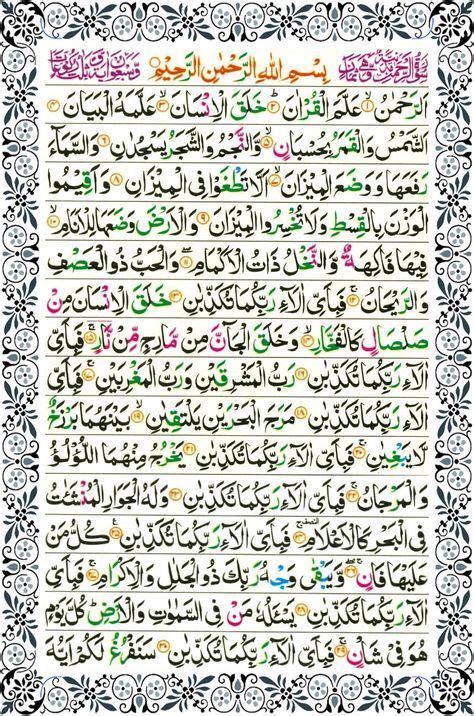 بِسْمِ اللهِ الرَّحْمٰنِ الرَّحِيْمِ
اَلرَّحْمٰنُ ۙ۱ عَلَّمَ الْقُرْاٰنَ ؕ۲ خَلَقَ الْاِنْسَانَ ۙ۳ عَلَّمَهُ الْبَيَانَ ۴
اَلشَّمْسُ وَالْقَمَرُ بِحُسْبَانٍ ۵ وَّالنَّجْمُ وَالشَّجَرُ يَسْجُدٰنِ ۶ وَالسَّمَآءَ
رَفَعَهَا وَوَضَعَ الْمِيْزَانَ ۙ۷ اَلَّا تَطْغَوْا فِى الْمِيْزَانِ ۸ وَاَقِيْمُوا
الْوَزْنَ بِالْقِسْطِ وَلَا تُخْسِرُوا الْمِيْزَانَ ۹ وَالْاَرْضَ وَضَعَهَا لِلْاَنَامِ ۙ۱۰
فِيْهَا فَاكِهَةٌ وَّالنَّخْلُ ذَاتُ الْاَكْمَامِ ۱۱ وَالْحَبُّ ذُو الْعَصْفِ
وَالرَّيْحَانُ ۚ۱۲ فَبِاَىِّ اٰلَآءِ رَبِّكُمَا تُكَذِّبٰنِ ۱۳ خَلَقَ الْاِنْسَانَ مِنْ
صَلْصَالٍ كَالْفَخَّارِ ۙ۱۴ وَخَلَقَ الْجَآنَّ مِنْ مَّارِجٍ مِّنْ نَّارٍ ۚ۱۵ فَبِاَىِّ
اٰلَآءِ رَبِّكُمَا تُكَذِّبٰنِ ۱۶ رَبُّ الْمَشْرِقَيْنِ وَرَبُّ الْمَغْرِبَيْنِ ۚ۱۷ فَبِاَىِّ
اٰلَآءِ رَبِّكُمَا تُكَذِّبٰنِ ۱۸ مَرَجَ الْبَحْرَيْنِ يَلْتَقِيٰنِ ۙ۱۹ بَيْنَهُمَا بَرْزَخٌ
لَّا يَبْغِيٰنِ ۚ۲۰ فَبِاَىِّ اٰلَآءِ رَبِّكُمَا تُكَذِّبٰنِ ۲۱ يَخْرُجُ مِنْهُمَا اللُّؤْلُؤُ
وَالْمَرْجَانُ ۚ۲۲ فَبِاَىِّ اٰلَآءِ رَبِّكُمَا تُكَذِّبٰنِ ۲۳ وَلَهُ الْجَوَارِ الْمُنْشَئٰتُ
فِى الْبَحْرِ كَالْاَعْلَامِ ۚ۲۴ فَبِاَىِّ اٰلَآءِ رَبِّكُمَا تُكَذِّبٰنِ ۲۵ كُلُّ مَنْ
عَلَيْهَا فَانٍ ۚۖ۲۶ وَّيَبْقٰى وَجْهُ رَبِّكَ ذُو الْجَلٰلِ وَالْاِكْرَامِ ۚ۲۷ فَبِاَىِّ
اٰلَآءِ رَبِّكُمَا تُكَذِّبٰنِ ۲۸ يَسْئَلُهٗ مَنْ فِى السَّمٰوٰتِ وَالْاَرْضِ ؕ كُلَّ يَوْمٍ
هُوَ فِىْ شَاْنٍ ۚ۲۹ فَبِاَىِّ اٰلَآءِ رَبِّكُمَا تُكَذِّبٰنِ ۳۰ سَنَفْرُغُ لَكُمْ اَيُّهَ